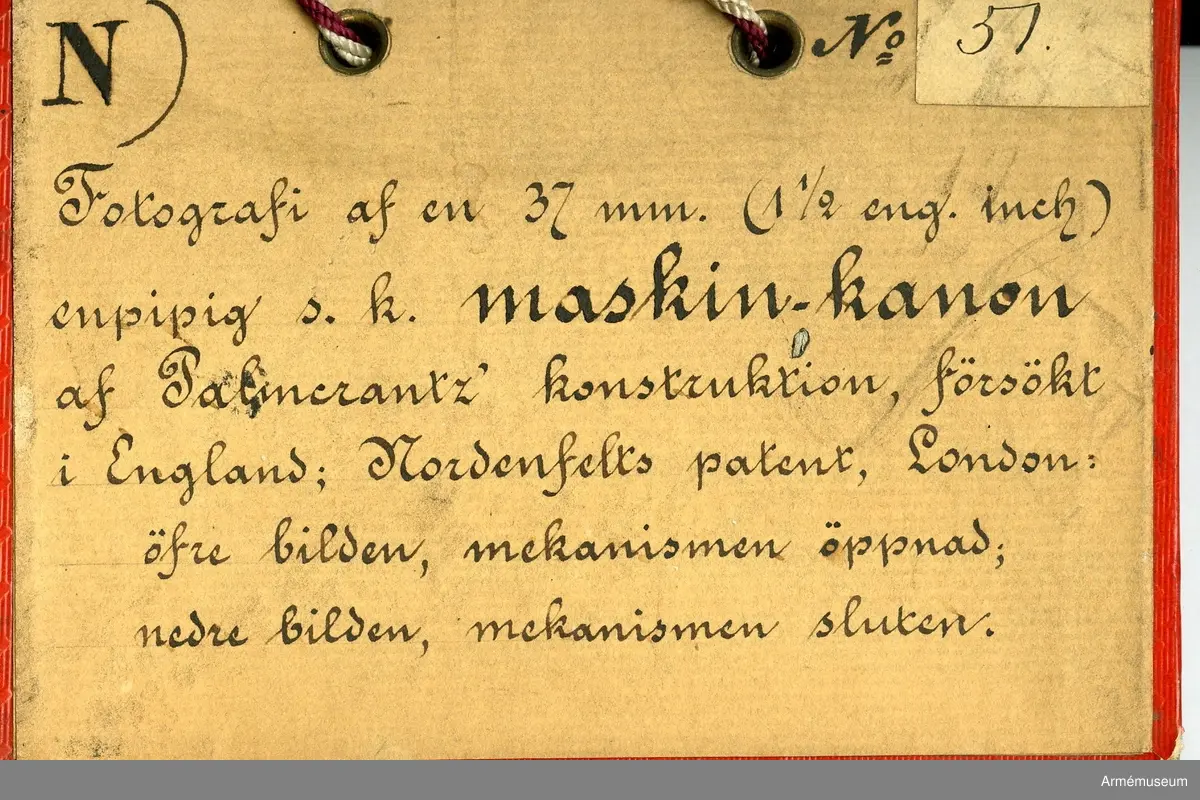 N) No 51.
Fotografi af en 37 mm. (1 1/2 eng. inch)
enpipig s. k. maskin-kanon
af Palmcrantz' konstruktion, försökt
i England; Nordenfelts patent, London:
öfre bilden, mekanismen öppnad;
nedre bilden, mekanismen sluten.
Armémuseum